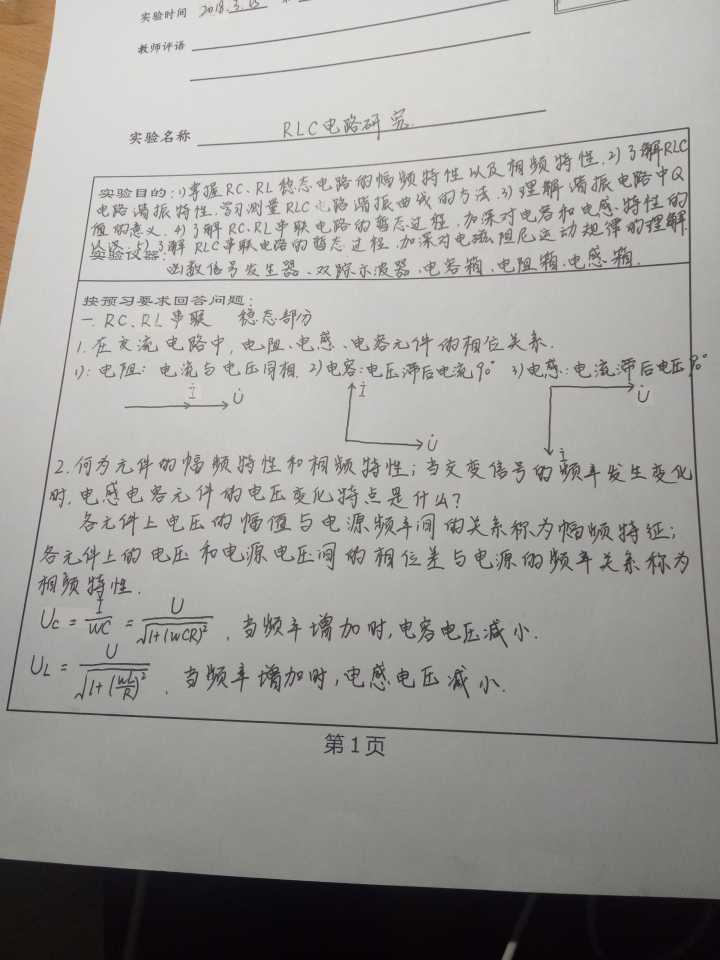 实验时间 2018.3.15
教师评语
实验名称 RLC电路研究
实验目的:1)掌握RC、RL稳态电路的幅频特性以及相频特性.2)了解RLC
电路谐振特性,学习测量RLC电路谐振曲线的方法.3)理解谐振电路中Q
值的意义.4)了解RC、RL串联电路的暂态过程,加深对电容和电感特性的
认识.5)了解RLC串联电路的暂态过程,加深对电磁阻尼运动规律的理解.
实验仪器:
函数信号发生器、双踪示波器、电容箱、电阻箱、电感箱.
按预习要求回答问题:
一. RC、RL串联 稳态部分
1.在交流电路中,电阻、电感、电容元件的相位关系.
1):电阻:电流与电压同相. 2)电容:电压滞后电流90° 3)电感:电流滞后电压90°
İ U̇ İ U̇ U̇ İ
2.何为元件的幅频特性和相频特性;当交变信号的频率发生变化
时,电感电容元件的电压变化特点是什么?
各元件上电压的幅值与电源频率间的关系称为幅频特征;
各元件上的电压和电源电压间的相位差与电源的频率关系称为
相频特性.
Uc = I/WC = U/√1+(WCR)² . 当频率增加时,电容电压减小.
UL = U/√1+(WL/R)² . 当频率增加时,电感电压减小.
第1页